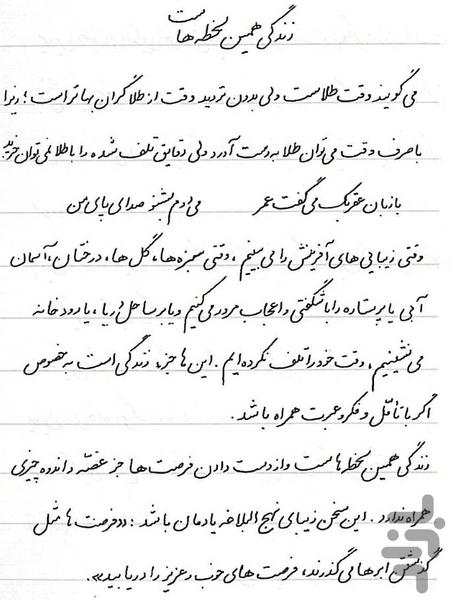 زندگی همین لحظه‌هاست
می‌گویند وقت طلاست ولی بدون تردید وقت از طلا گران‌بهاتر است؛ زیرا
با صرف وقت می‌توان طلا به دست آورد ولی دقایق تلف شده را با طلا نمی‌توان خرید.
با زبان عقربک می‌گفت عمر می‌روم بشنو صدای پای من
وقتی زیبایی‌های آفرینش را می‌بینیم، وقتی سبزه‌ها، گل‌ها، درختان، آسمان
آبی یا پرستاره را با شگفتی و اعجاب مرور می‌کنیم و یا بر ساحل دریا، یا رودخانه
می‌نشینیم، وقت خود را تلف نکرده‌ایم. این‌ها جزء زندگی است به خصوص
اگر با تأمّل و فکر و عبرت همراه باشد.
زندگی همین لحظه‌هاست و از دست دادن فرصت‌ها جز غصّه و اندوه چیزی
همراه ندارد. این سخن زیبای نهج البلاغه یادمان باشد: «فرصت‌ها مثل
گذشتن ابرها می‌گذرند، فرصت‌های خوب و عزیز را دریابید».